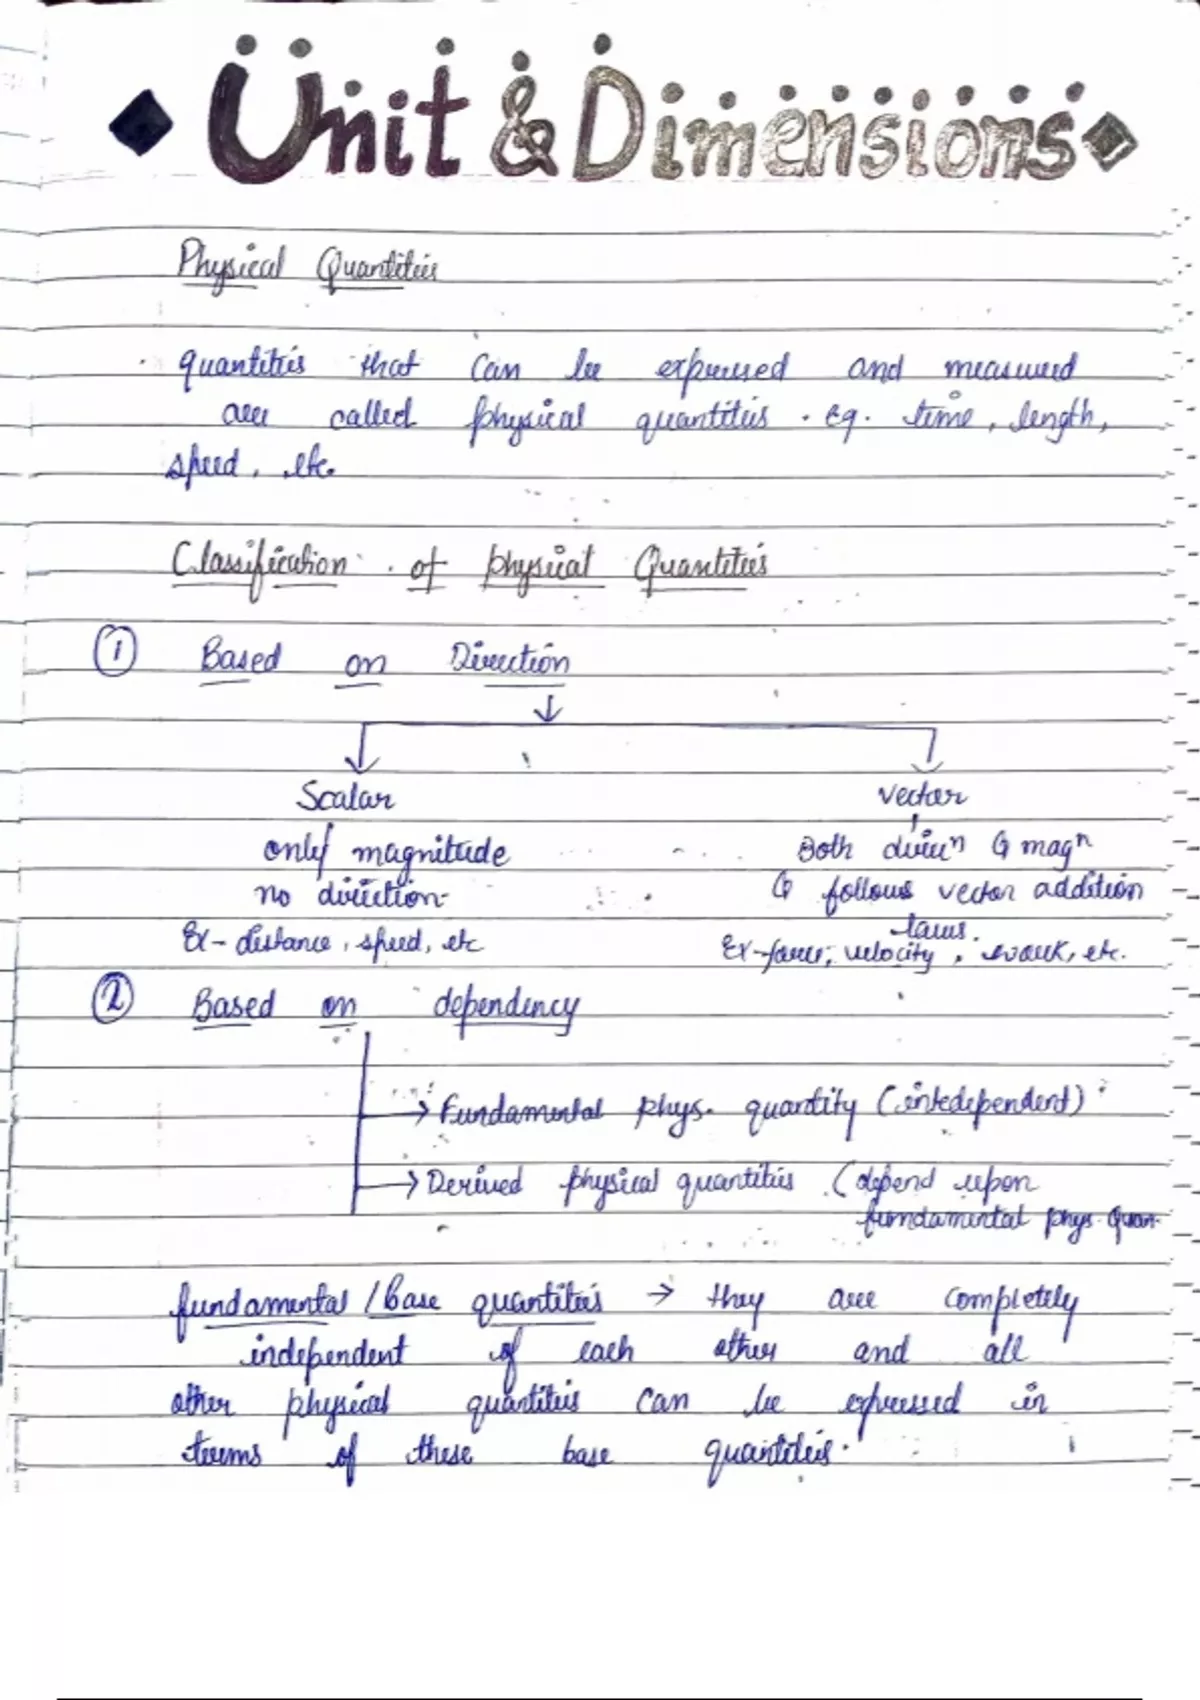 Unit & Dimensions
Physical Quantities
quantities that can be expressed and measured
are called physical quantities. eg. time, length,
speed, etc.
Classification of physical Quantities
① Based on Direction
Scalar vector
only magnitude Both direcⁿ & magⁿ
no direction & follows vector addition
laws.
Ex- distance, speed, etc Ex- force, velocity, work, etc.
② Based on dependency
→ Fundamental phys. quantity (intedependent)
→ Derived physical quantities (depend upon
fundamental phys. Quan.
fundamental / Base quantities → they are completely
independent of each other and all
other physical quantities can be expressed in
terms of these base quantities.